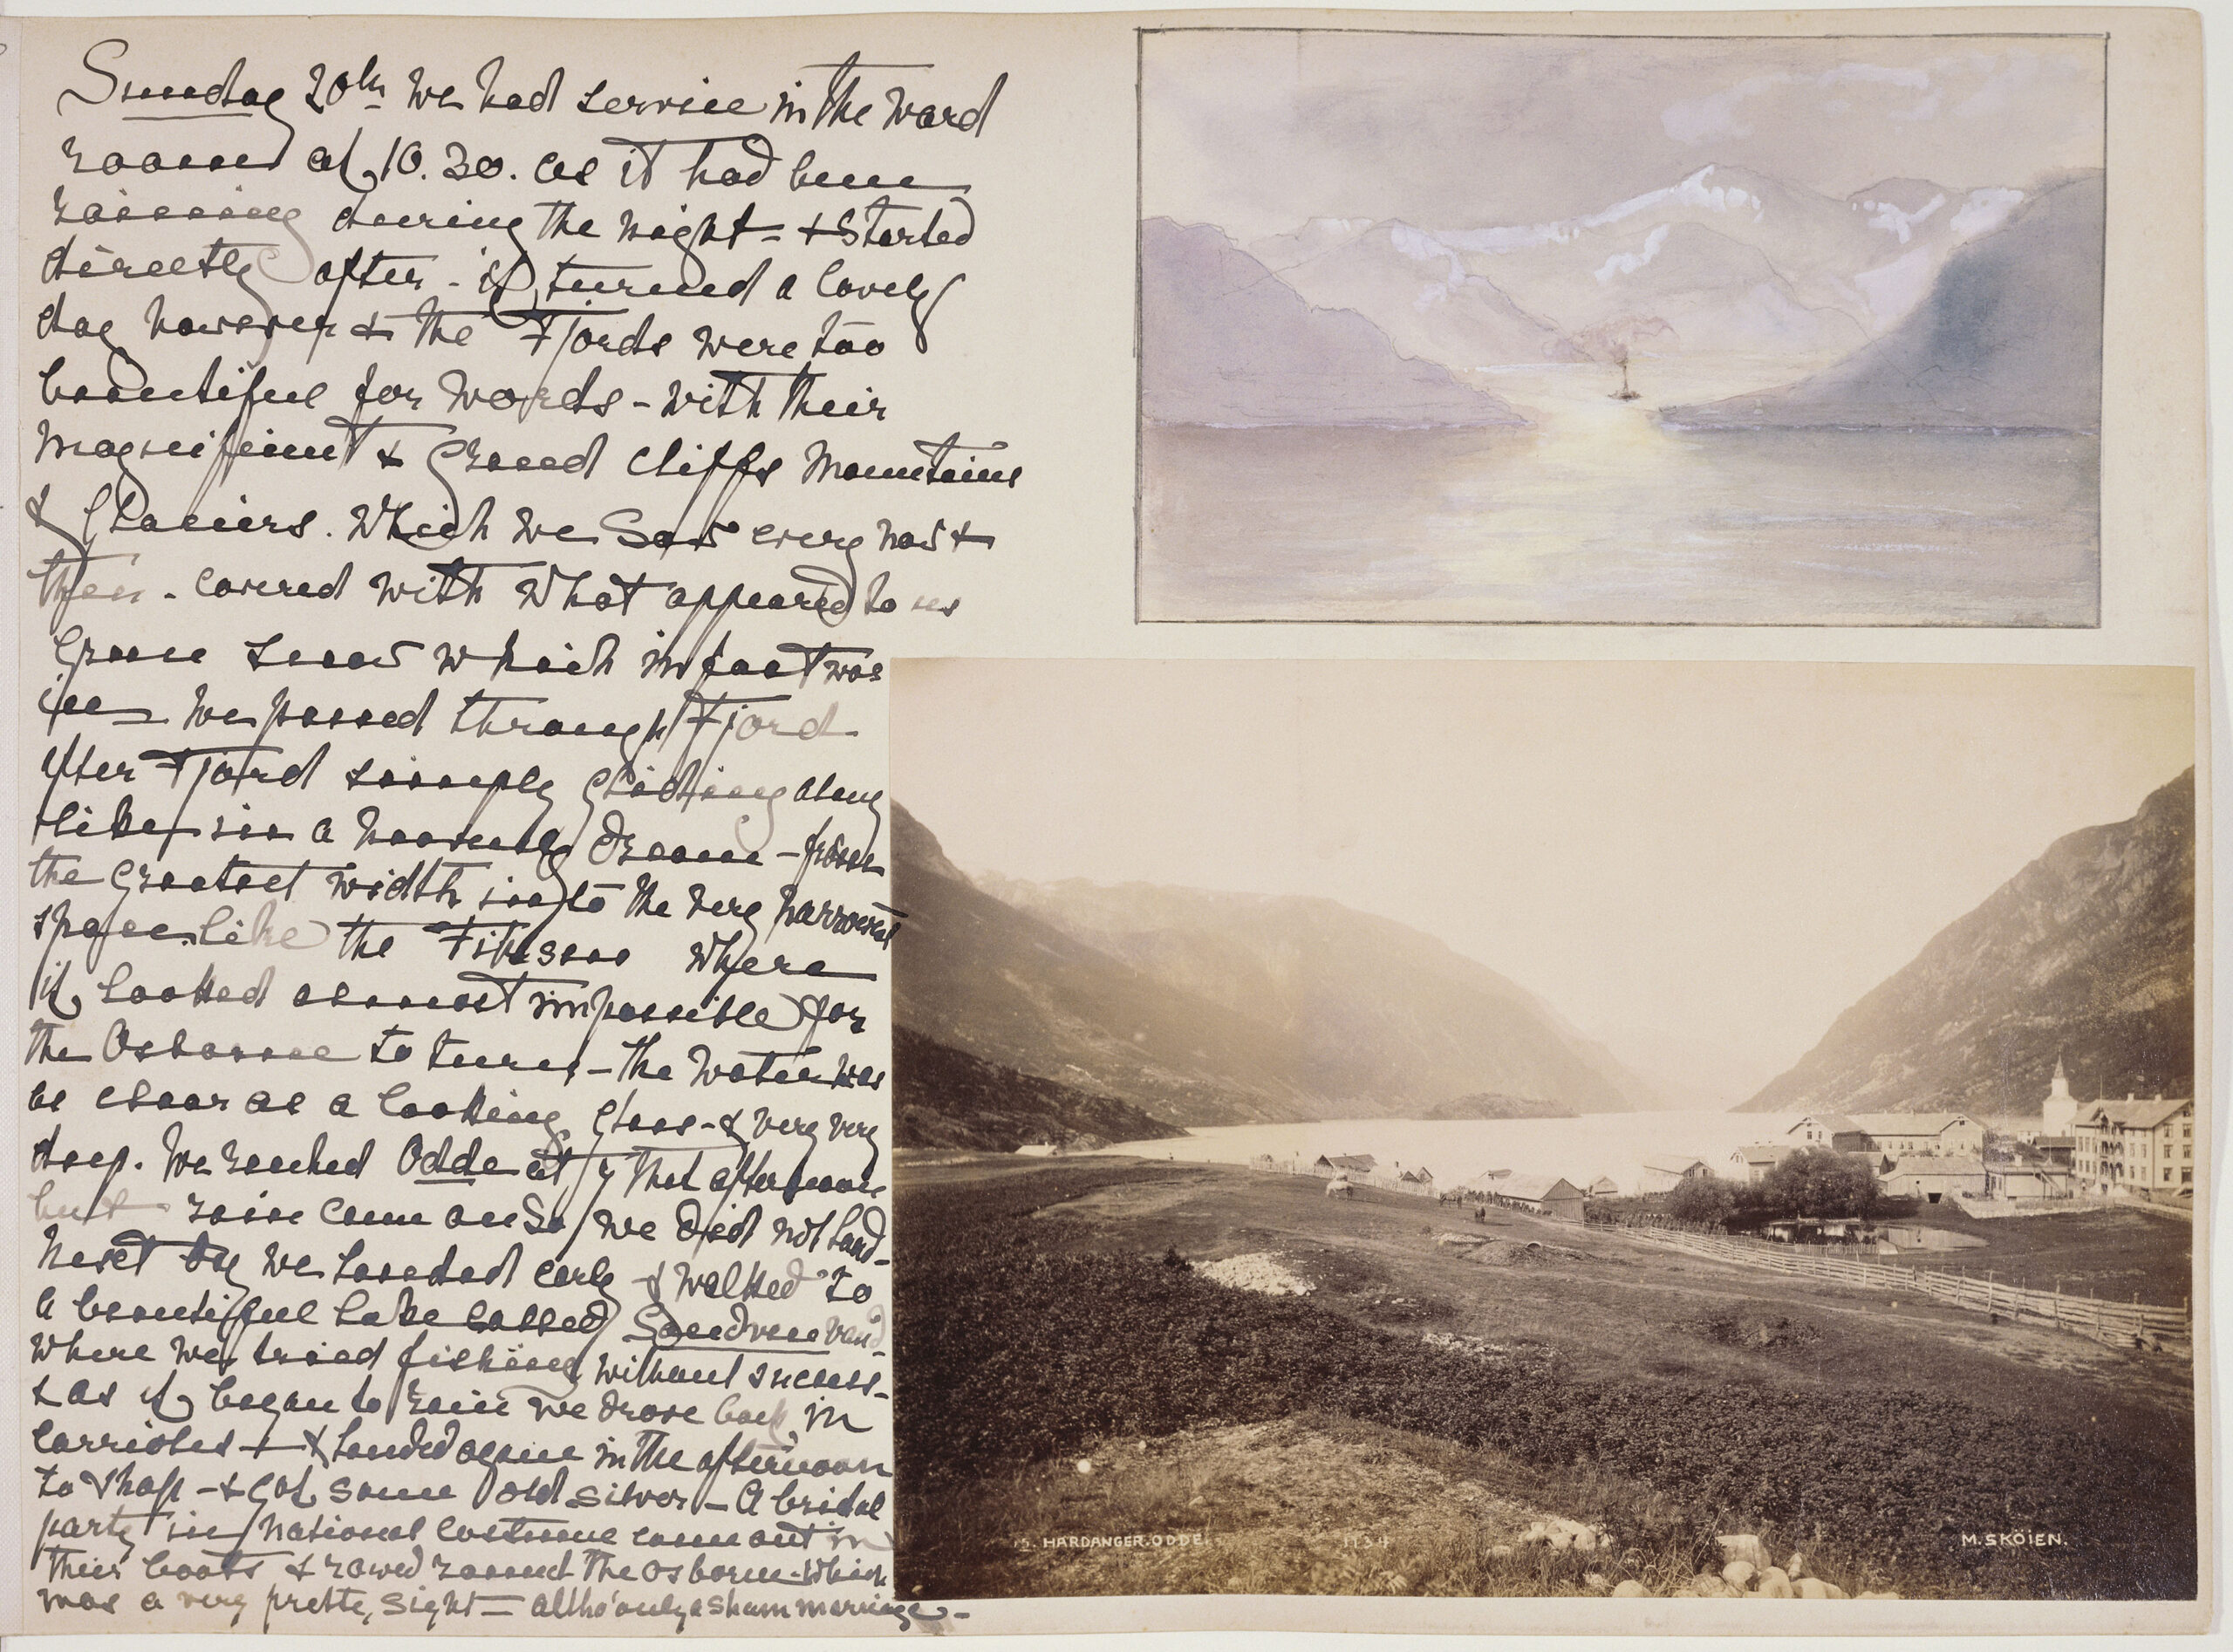 Sunday 20th we had service in the ward
room at 10.30. as it had been
raining during the night - & started
directly after - it turned a lovely
day however & the Fjords were too
beautiful for words - with their
magnificient & Grand cliffs Mountains
& Glaciers. Which we saw every now &
then - covered with what appeared to us
Green snow which in fact was
ice we passed through Fjord
after Fjord simply gliding along
like in a heavenly dream - from
the greatest width into the very narrowest
space like the where
it looked almost impossible for
the Osborne to turn, - the water was
as clear as a looking glass - & very very
deep. We reached Odde at 7 that afternoon
but rain came on so we did not land -
Next day we landed early & walked to
a beautiful lake called Sandven vand
where we tried fishing without success -
& as it began to rain we drove back in
carrioles - & landed again in the afternoon
to shop - & got some old silver - A bridal
party in national costume came out in
their boats & rowed round the Osborne which
was a very prette, sight - altho' only a sham marriage -
S. HARDANGER. ODDE. 1134 M. SKÖIEN.